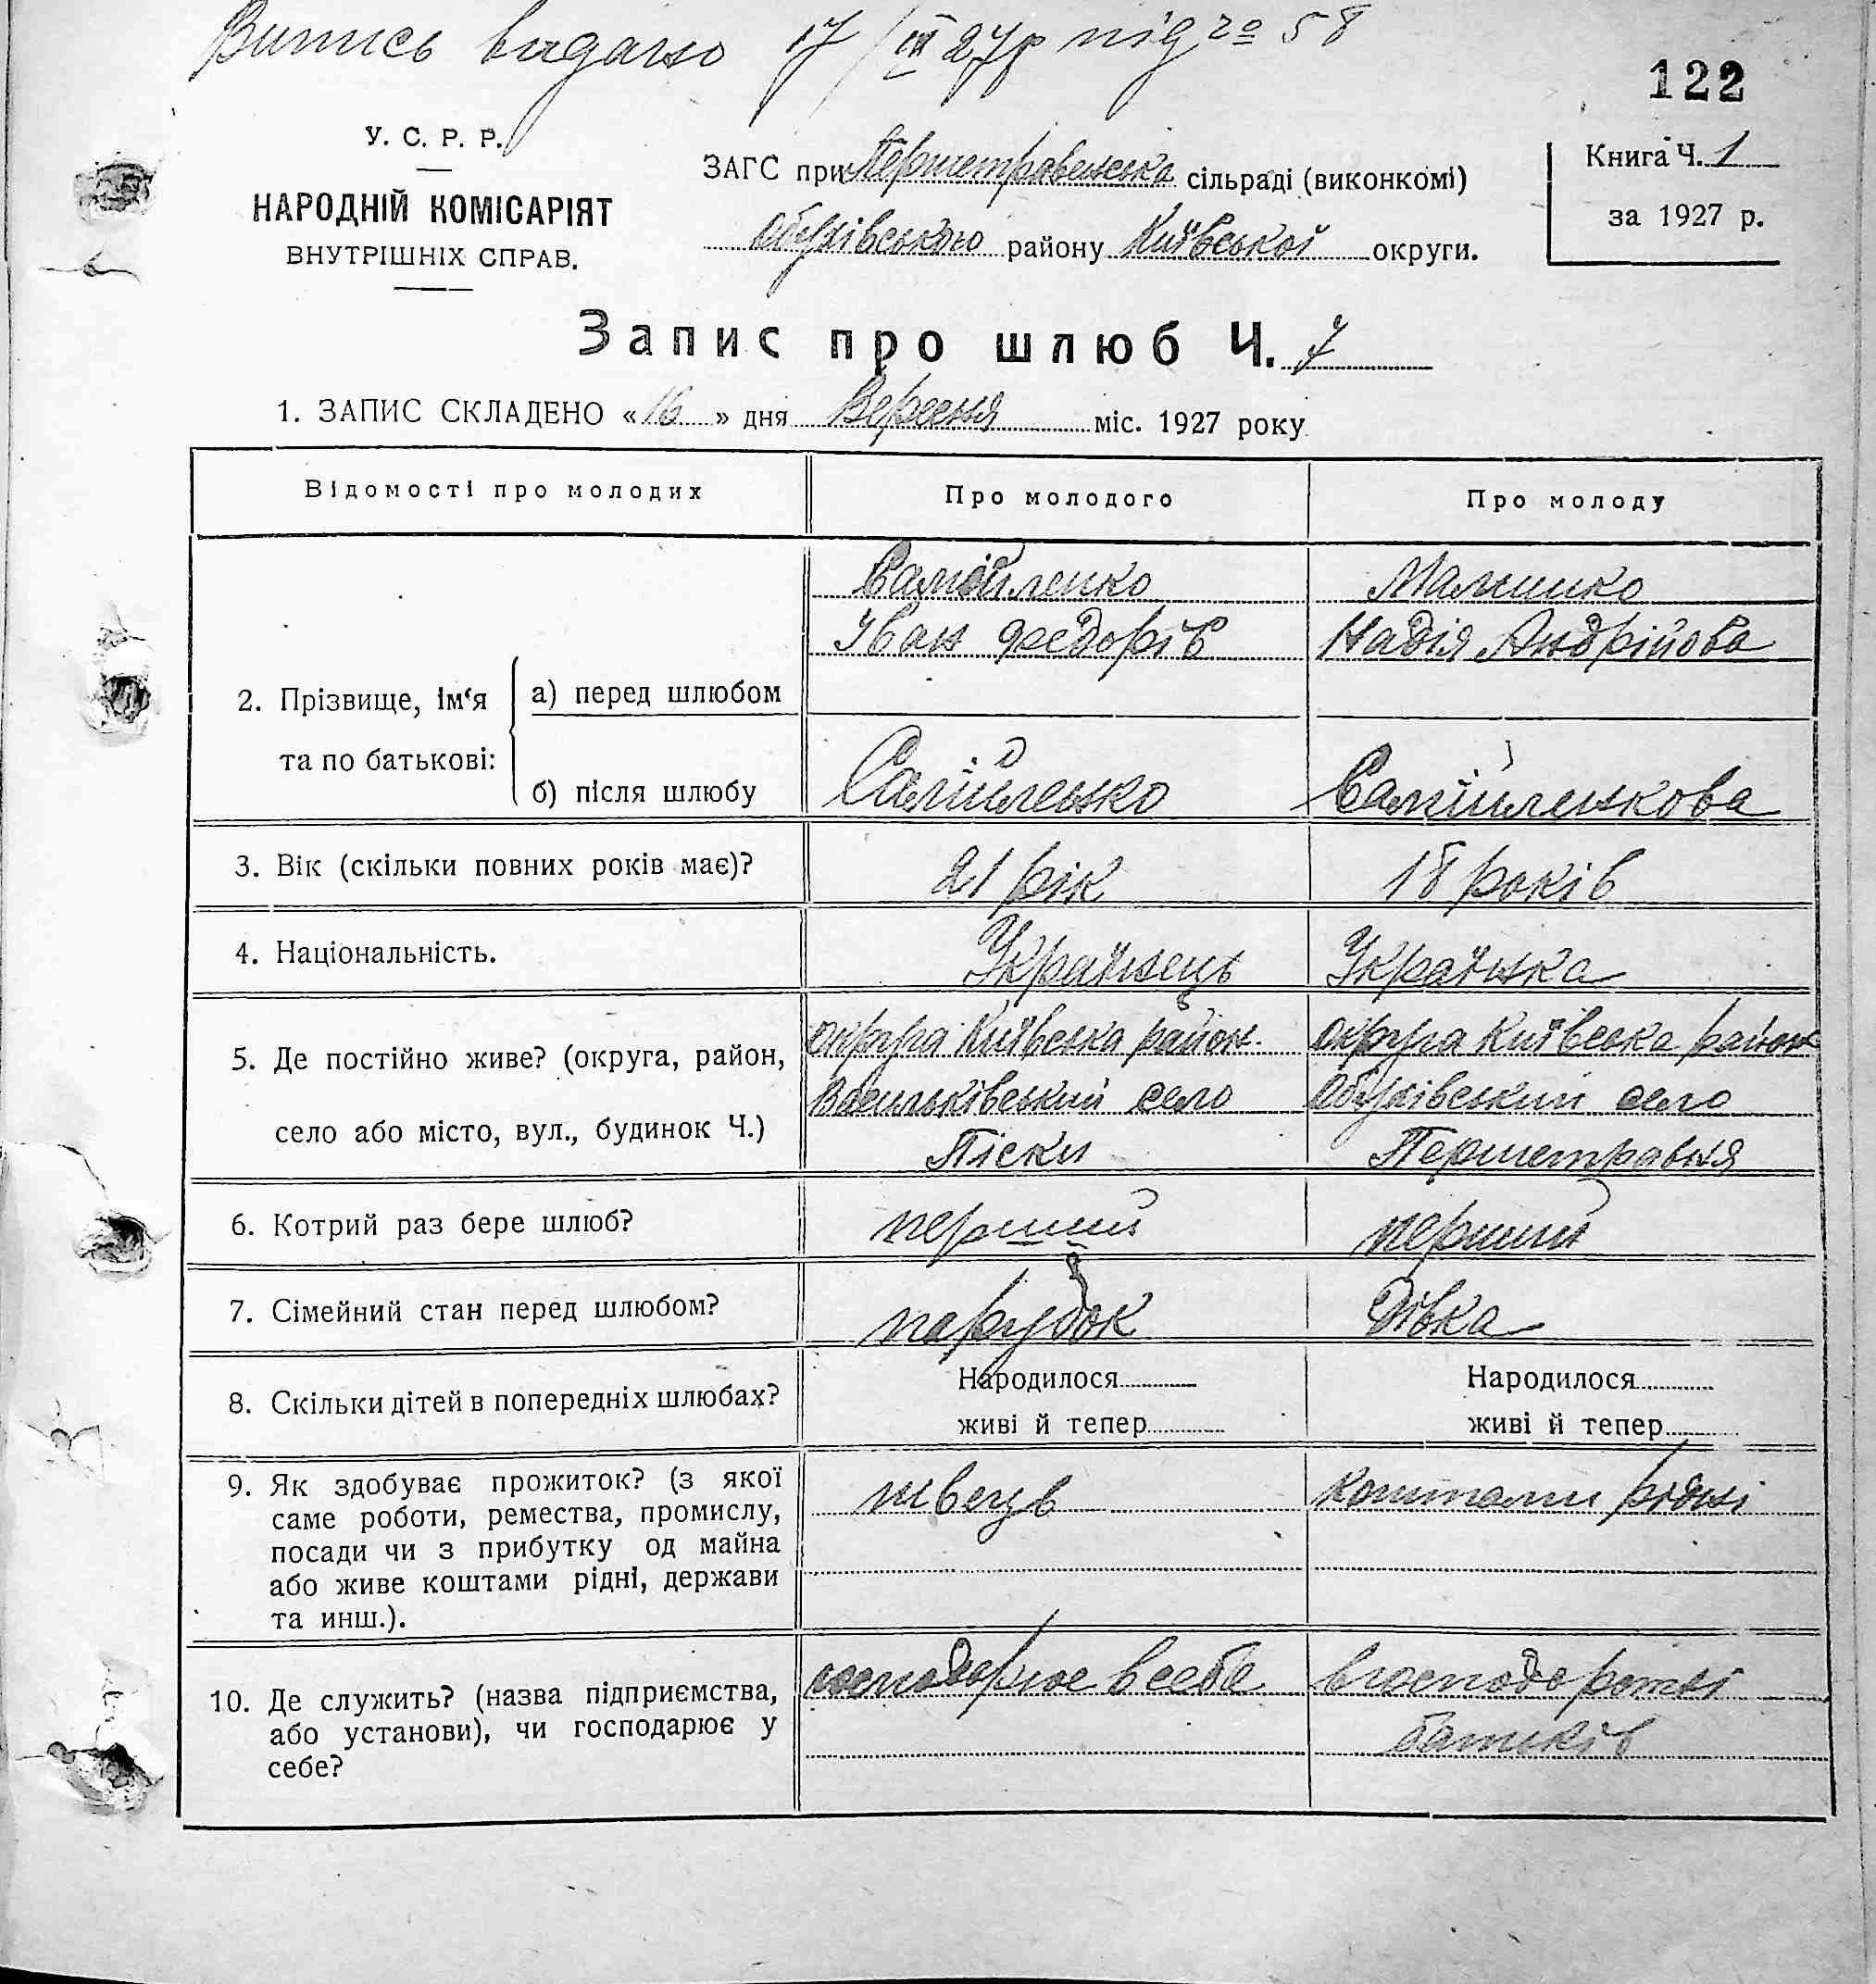 Випись видано 17/III 27р під № 58
122
У. С. Р. Р.
НАРОДНІЙ КОМІСАРІЯТ
ВНУТРІШНІХ СПРАВ.
ЗАГС при Першетравенська сільраді (виконкомі)
Обухівського району Київської округи.
Книга Ч. 1
за 1927 р.
Запис про шлюб Ч. 7
1. ЗАПИС СКЛАДЕНО «16» дня Вересня міс. 1927 року
Відомості про молодих
Про молодого
Про молоду
2. Прізвище, ім‘я
та по батькові:
а) перед шлюбом
Самійленко
Іван Федорів
Малишко
Надія Андрійова
б) після шлюбу
Самійленко
Самійленкова
3. Вік (скільки повних років має)?
21 рік
18 років
4. Національність.
Українець
Українка
5. Де постійно живе? (округа, район,
село або місто, вул., будинок Ч.)
округа Київська район
Васильківський село
Піски
округа Київська район
Обухівський село
Першетравня
6. Котрий раз бере шлюб?
перший
перший
7. Сімейний стан перед шлюбом?
парубок
Дівка
8. Скільки дітей в попередніх шлюбах?
Народилося
живі й тепер
Народилося
живі й тепер
9. Як здобуває прожиток? (з якої
саме роботи, ремества, промислу,
посади чи з прибутку од майна
або живе коштами рідні, держави
та инш.).
швець
коштами рідні
10. Де служить? (назва підприємства,
або установи), чи господарює у
себе?
господарює в себе
в господарстві
батьків